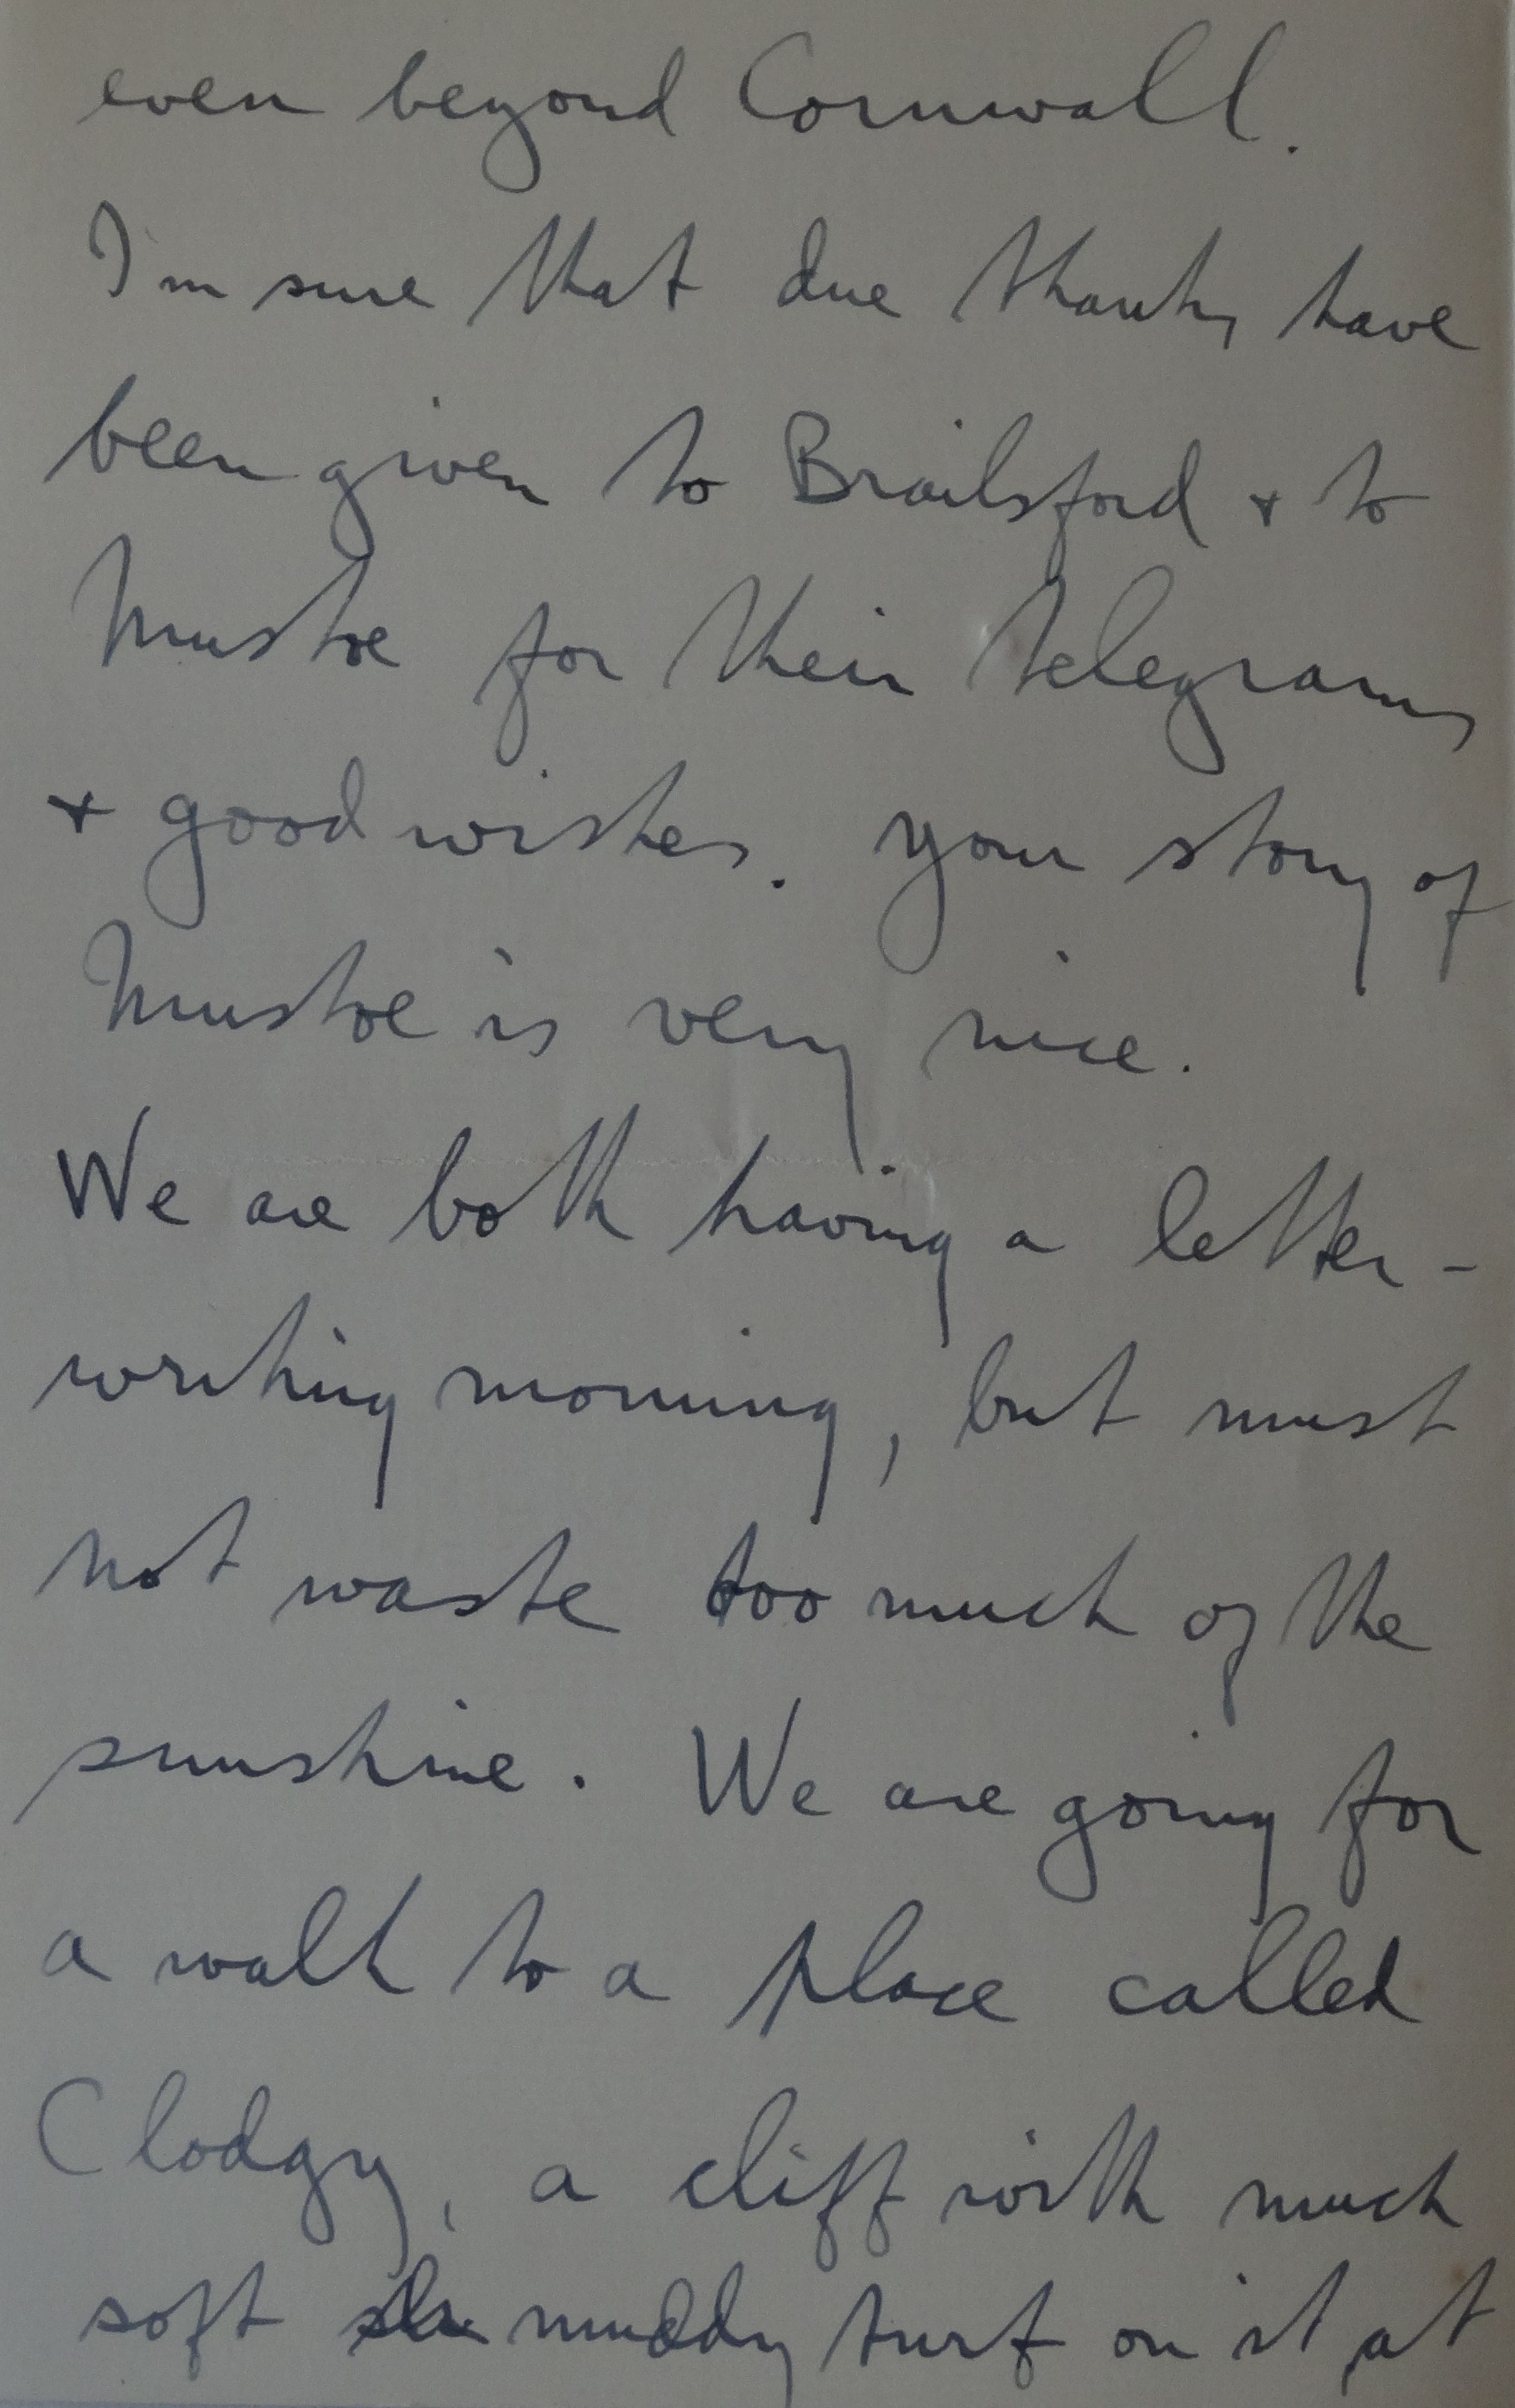 even beyond Cornwall.
I'm sure that due thanks have
been given to Brailsford + to
Mustoe for their telegrams
+ good wishes. Your story of
Mustoe is very nice.
We are both having a letter-
writing morning, but must
not waste too much of the
sunshine. We are going for
a walk to a place called
Clodgy, a cliff with much
soft muddy turf on it at